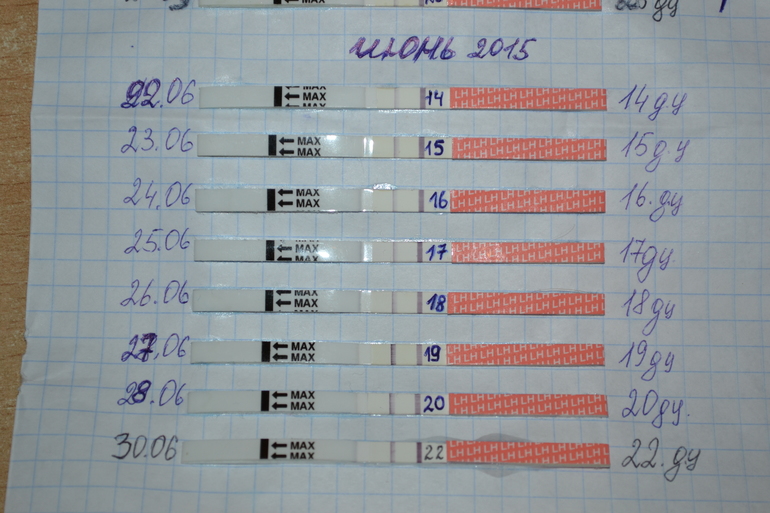 ИЮНЬ 2015
22.06 ←MAX ←MAX 14 LHLHLHLHLHLHLH 14 ду
23.06 ←MAX ←MAX 15 LHLHLHLHLHLHLH 15 д.у
24.06 ←MAX ←MAX 16 LHLHLHLHLHLHLH 16. ду
25.06 ←MAX ←MAX 17 LHLHLHLHLHLHLH 17 ду
26.06 ←MAX ←MAX 18 LHLHLHLHLHLHLH 18 ду
27.06 ←MAX ←MAX 19 LHLHLHLHLHLHLH 19 ду
28.06 ←MAX ←MAX 20 LHLHLHLHLHLHLH 20 ду.
30.06 ←MAX ←MAX 22 LHLHLHLHLHLHLH 22. ду